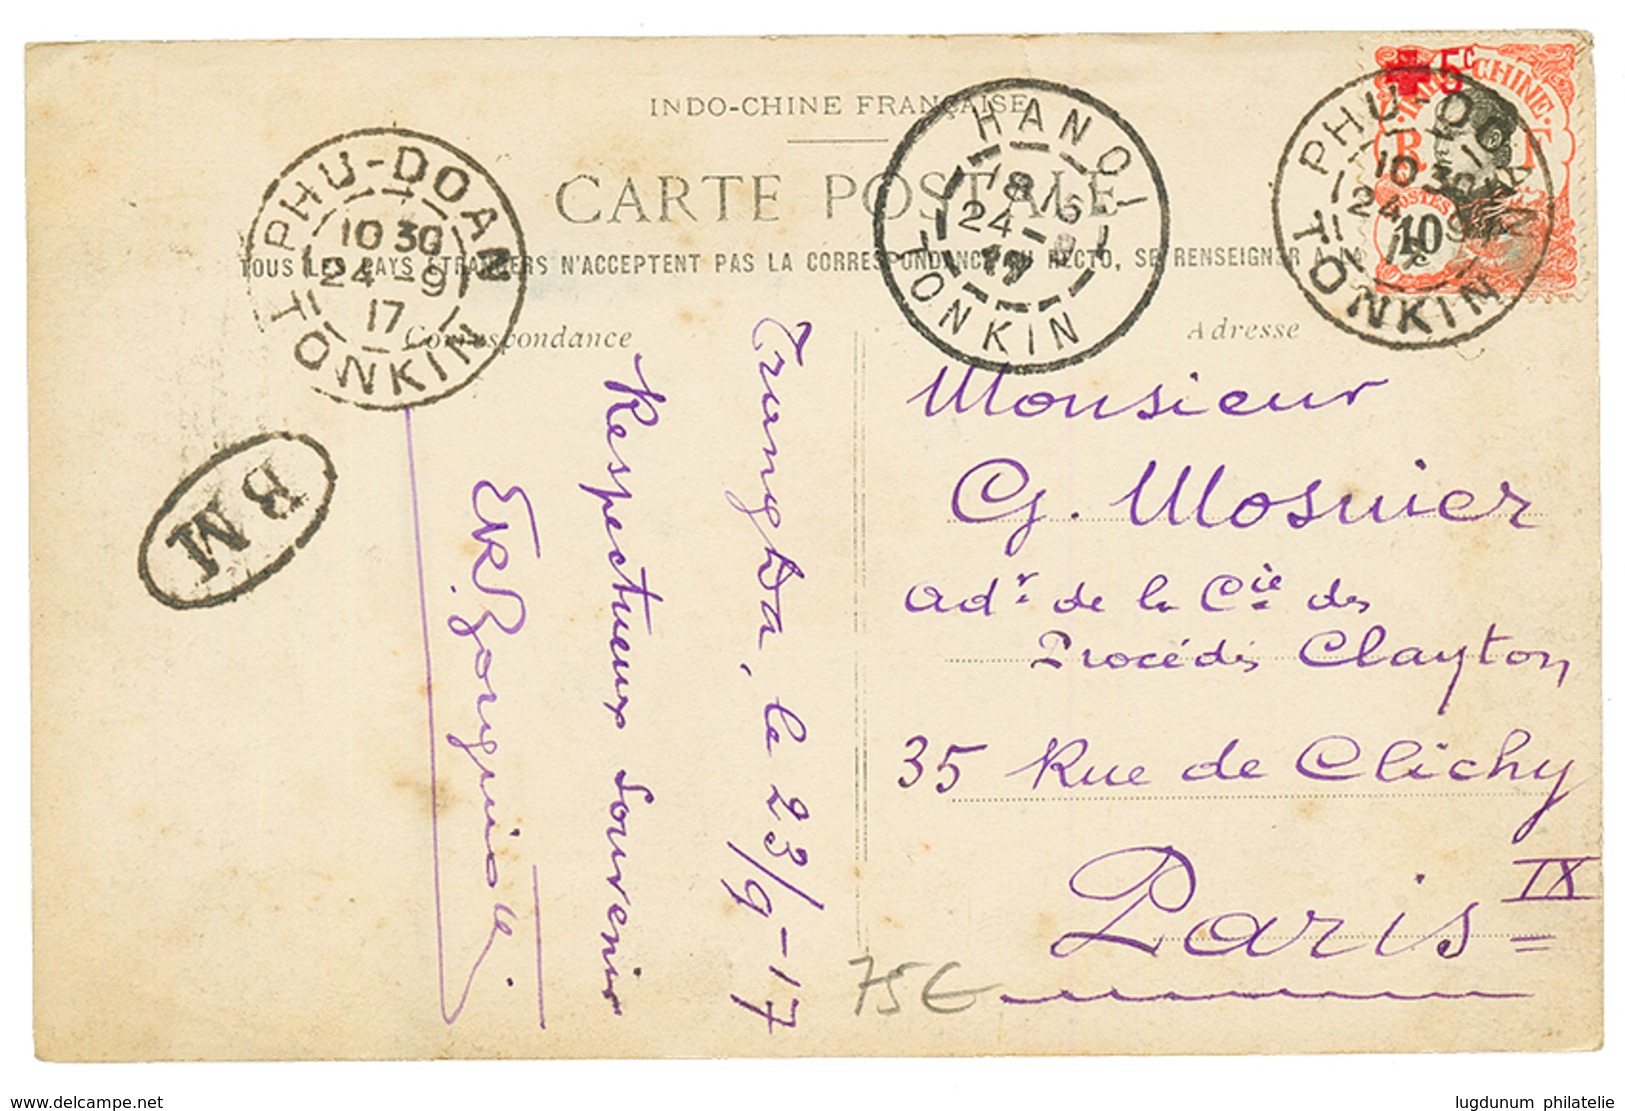 INDO-CHINE FRANÇAISE
CARTE POSTALE
TOUS LES PAYS ÉTRANGERS N'ACCEPTENT PAS LA CORRESPONDANCE AU RECTO, SE RENSEIGNER A LA
Correspondance
Adresse
PHU-DOAN
10 30
24 -9
17
TONKIN
HANOI
24 -9
17
TONKIN
PHU-DOAN
10 30
24 -9
17
TONKIN
5c
INDO-CHINE
R F
POSTES
10
B M
Trang Da, le 23/9-17
Respectueux souvenir
Monsieur
G. Mosnier
adr de la Cie des
Procédés Clayton
35 Rue de Clichy
Paris IX
75€
delcampe.net
lugdunum philatelie